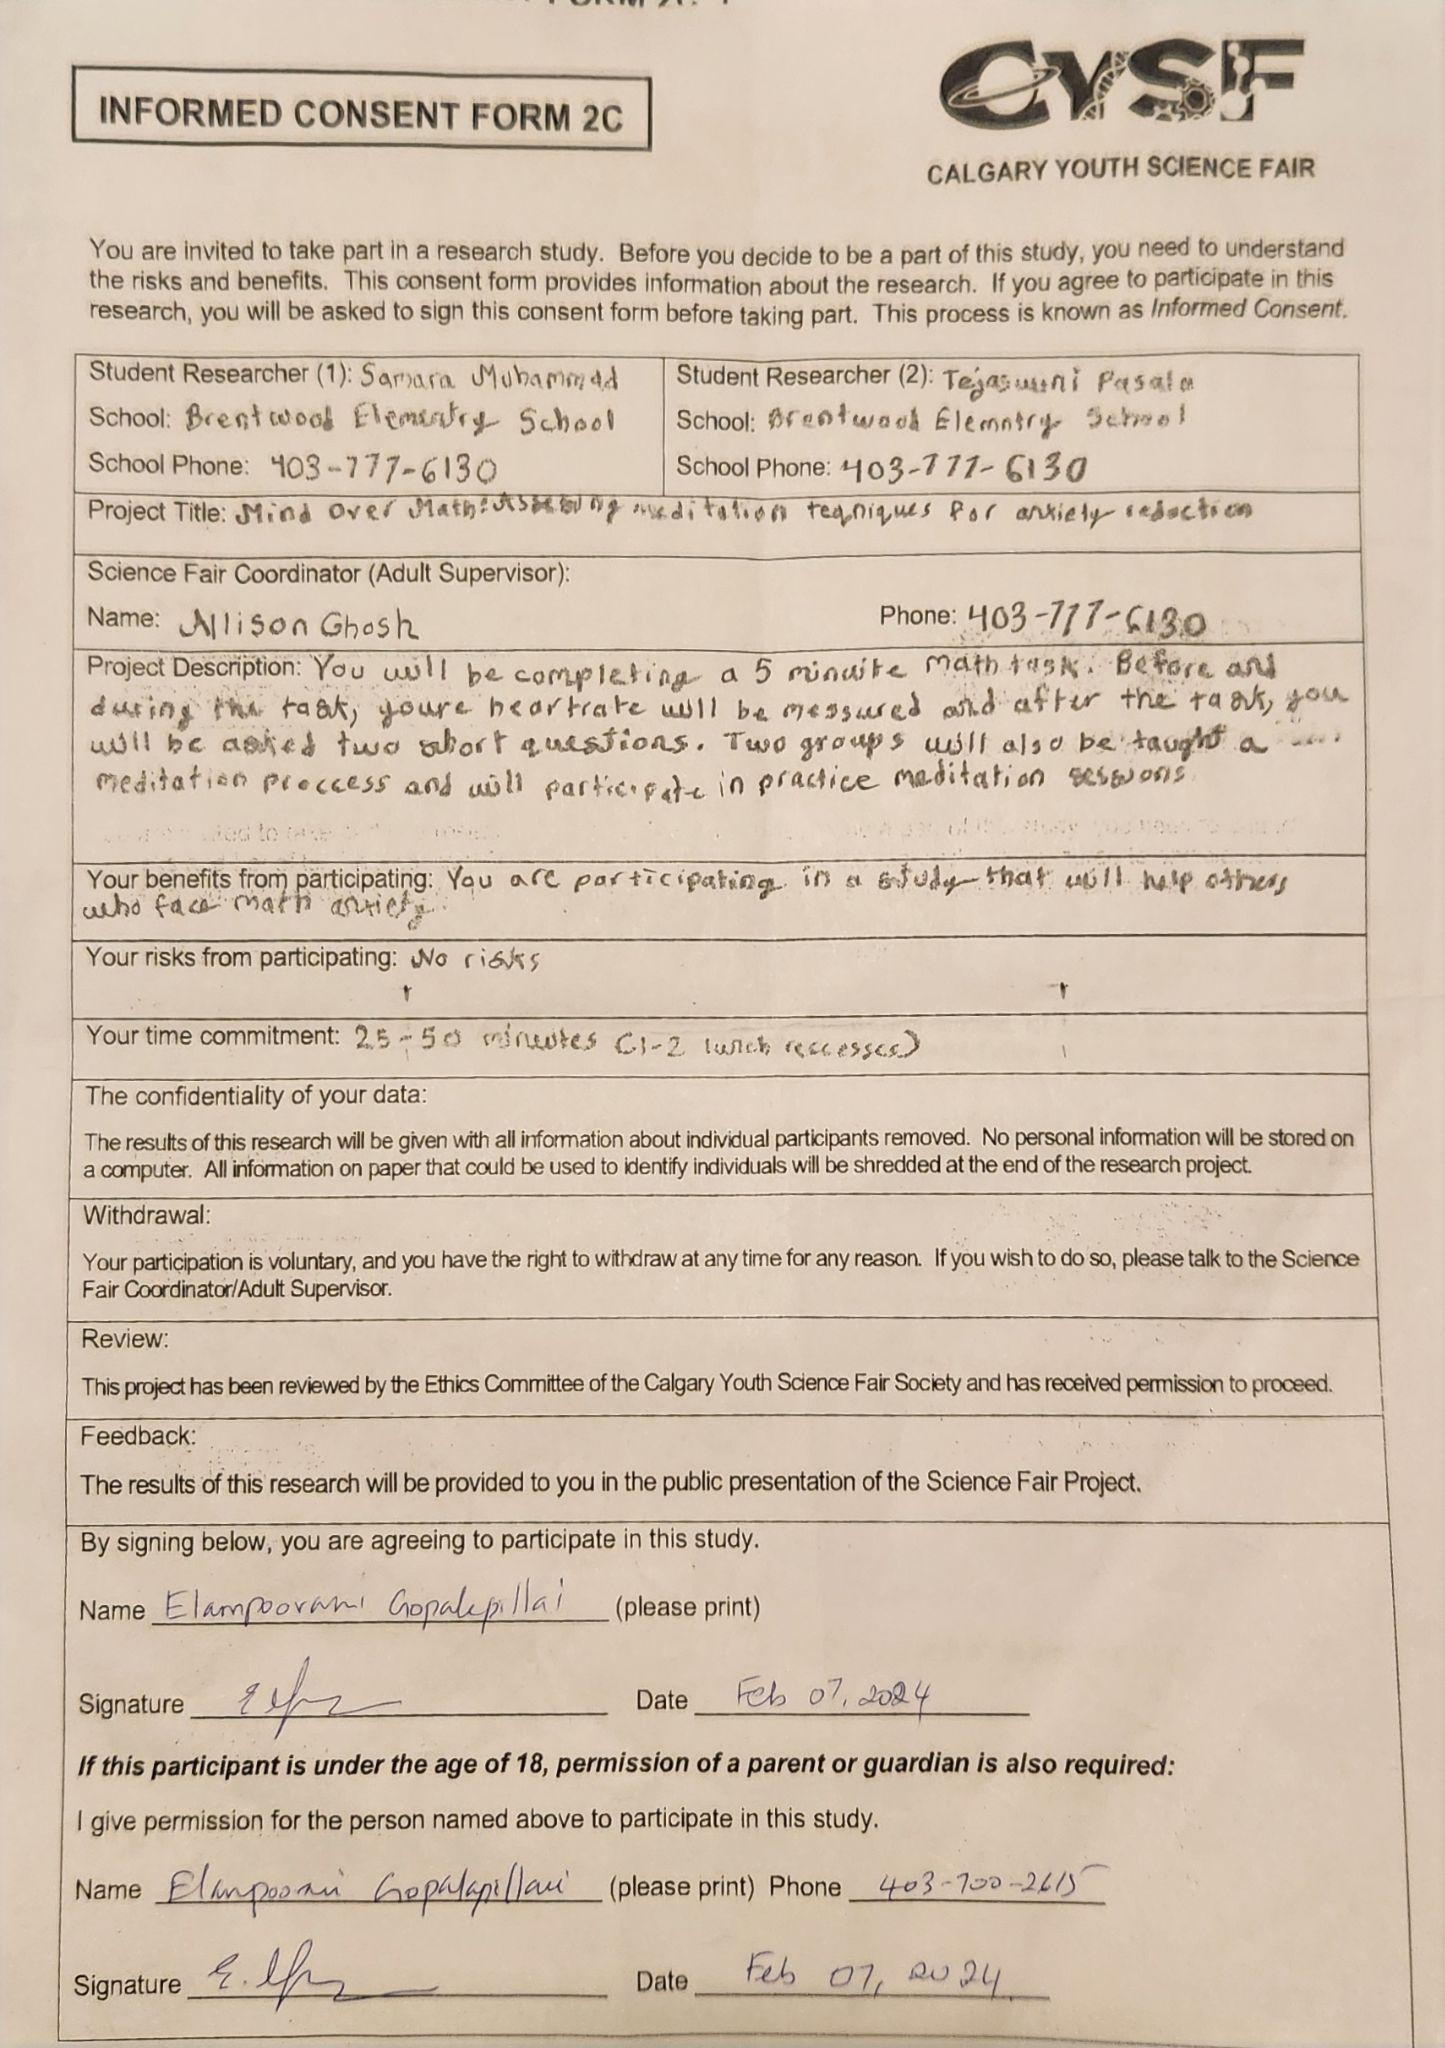 INFORMED CONSENT FORM 2C
CYSF
CALGARY YOUTH SCIENCE FAIR
You are invited to take part in a research study. Before you decide to be a part of this study, you need to understand
the risks and benefits. This consent form provides information about the research. If you agree to participate in this
research, you will be asked to sign this consent form before taking part. This process is known as Informed Consent.
Student Researcher (1): Samara Muhammad
School: Brentwood Elementry School
School Phone: 403-777-6130
Student Researcher (2): Tejaswini Pasala
School: Brentwood Elemntry School
School Phone: 403-777-6130
Project Title: Mind Over Math: Assessing meditation teqniques for anxiety reduction
Science Fair Coordinator (Adult Supervisor):
Name: Allison Ghosh Phone: 403-777-6130
Project Description: You will be completing a 5 minuite math task. Before and
during the task, youre heartrate will be messured and after the task, you
will be asked two short questions. Two groups will also be taught a
meditation proccess and will participate in practice meditation sessions
Your benefits from participating: You are participating in a study that will help others
who face math anxiety.
Your risks from participating: No risks
Your time commitment: 25-50 minutes (1-2 lunch reccesses)
The confidentiality of your data:
The results of this research will be given with all information about individual participants removed. No personal information will be stored on
a computer. All information on paper that could be used to identify individuals will be shredded at the end of the research project.
Withdrawal:
Your participation is voluntary, and you have the right to withdraw at any time for any reason. If you wish to do so, please talk to the Science
Fair Coordinator/Adult Supervisor.
Review:
This project has been reviewed by the Ethics Committee of the Calgary Youth Science Fair Society and has received permission to proceed.
Feedback:
The results of this research will be provided to you in the public presentation of the Science Fair Project.
By signing below, you are agreeing to participate in this study.
Name Elampoorani Gopalapillai (please print)
Signature Date Feb 07, 2024
If this participant is under the age of 18, permission of a parent or guardian is also required:
I give permission for the person named above to participate in this study.
Name Elampoorani Gopalapillai (please print) Phone 403-700-2615
Signature Date Feb 07, 2024